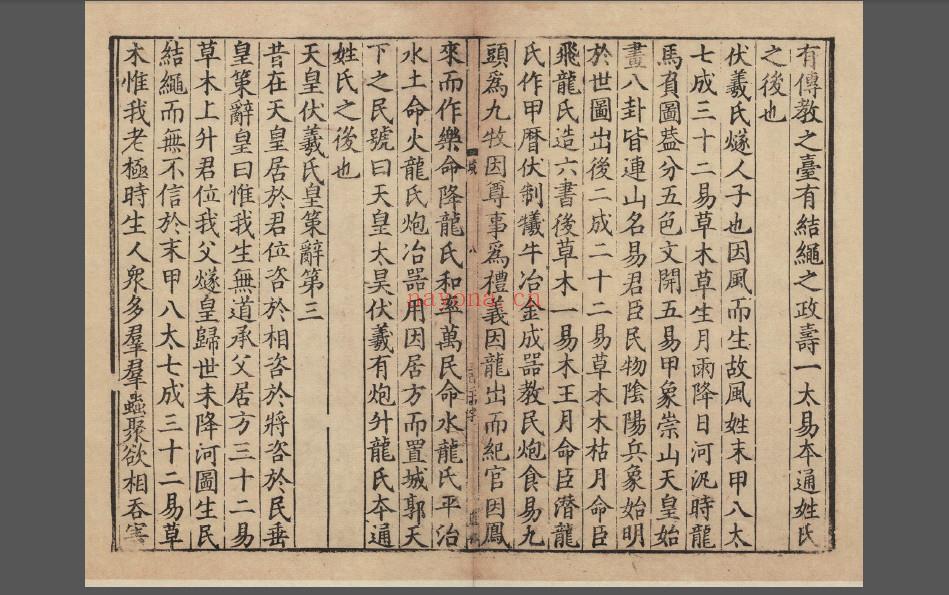 有傳教之臺有結繩之政壽一太易本通姓氏
之後也
伏羲氏燧人子也因風而生故風姓末甲八太
七成三十二易草木草生月雨降日河汎時龍
馬負圖葢分五色文開五易甲象崇山天皇始
畫八卦皆連山名易君臣民物陰陽兵象始明
於世圖出後二成二十二易草木木枯月命臣
飛龍氏造六書後草木一易木王月命臣潛龍
氏作甲曆伏制犧牛冶金成器教民炮食易九
頭爲九牧因尊事爲禮義因龍出而紀官因鳳
來而作樂命降龍氏和率萬民命水龍氏平治
水土命火龍氏炮冶器用因居方而置城郭天
下之民號曰天皇太昊伏羲有炮升龍氏本通
姓氏之後也
天皇伏羲氏皇策辭第三
昔在天皇居於君位咨於相咨於將咨於民垂
皇策辭皇曰惟我生無道承父居方三十二易
草木上升君位我父燧皇歸世未降河圖生民
結繩而無不信於末甲八太七成三十二易草
木惟我老極時生人衆多羣羣蟲聚欲相吞害
八
nayona.cn